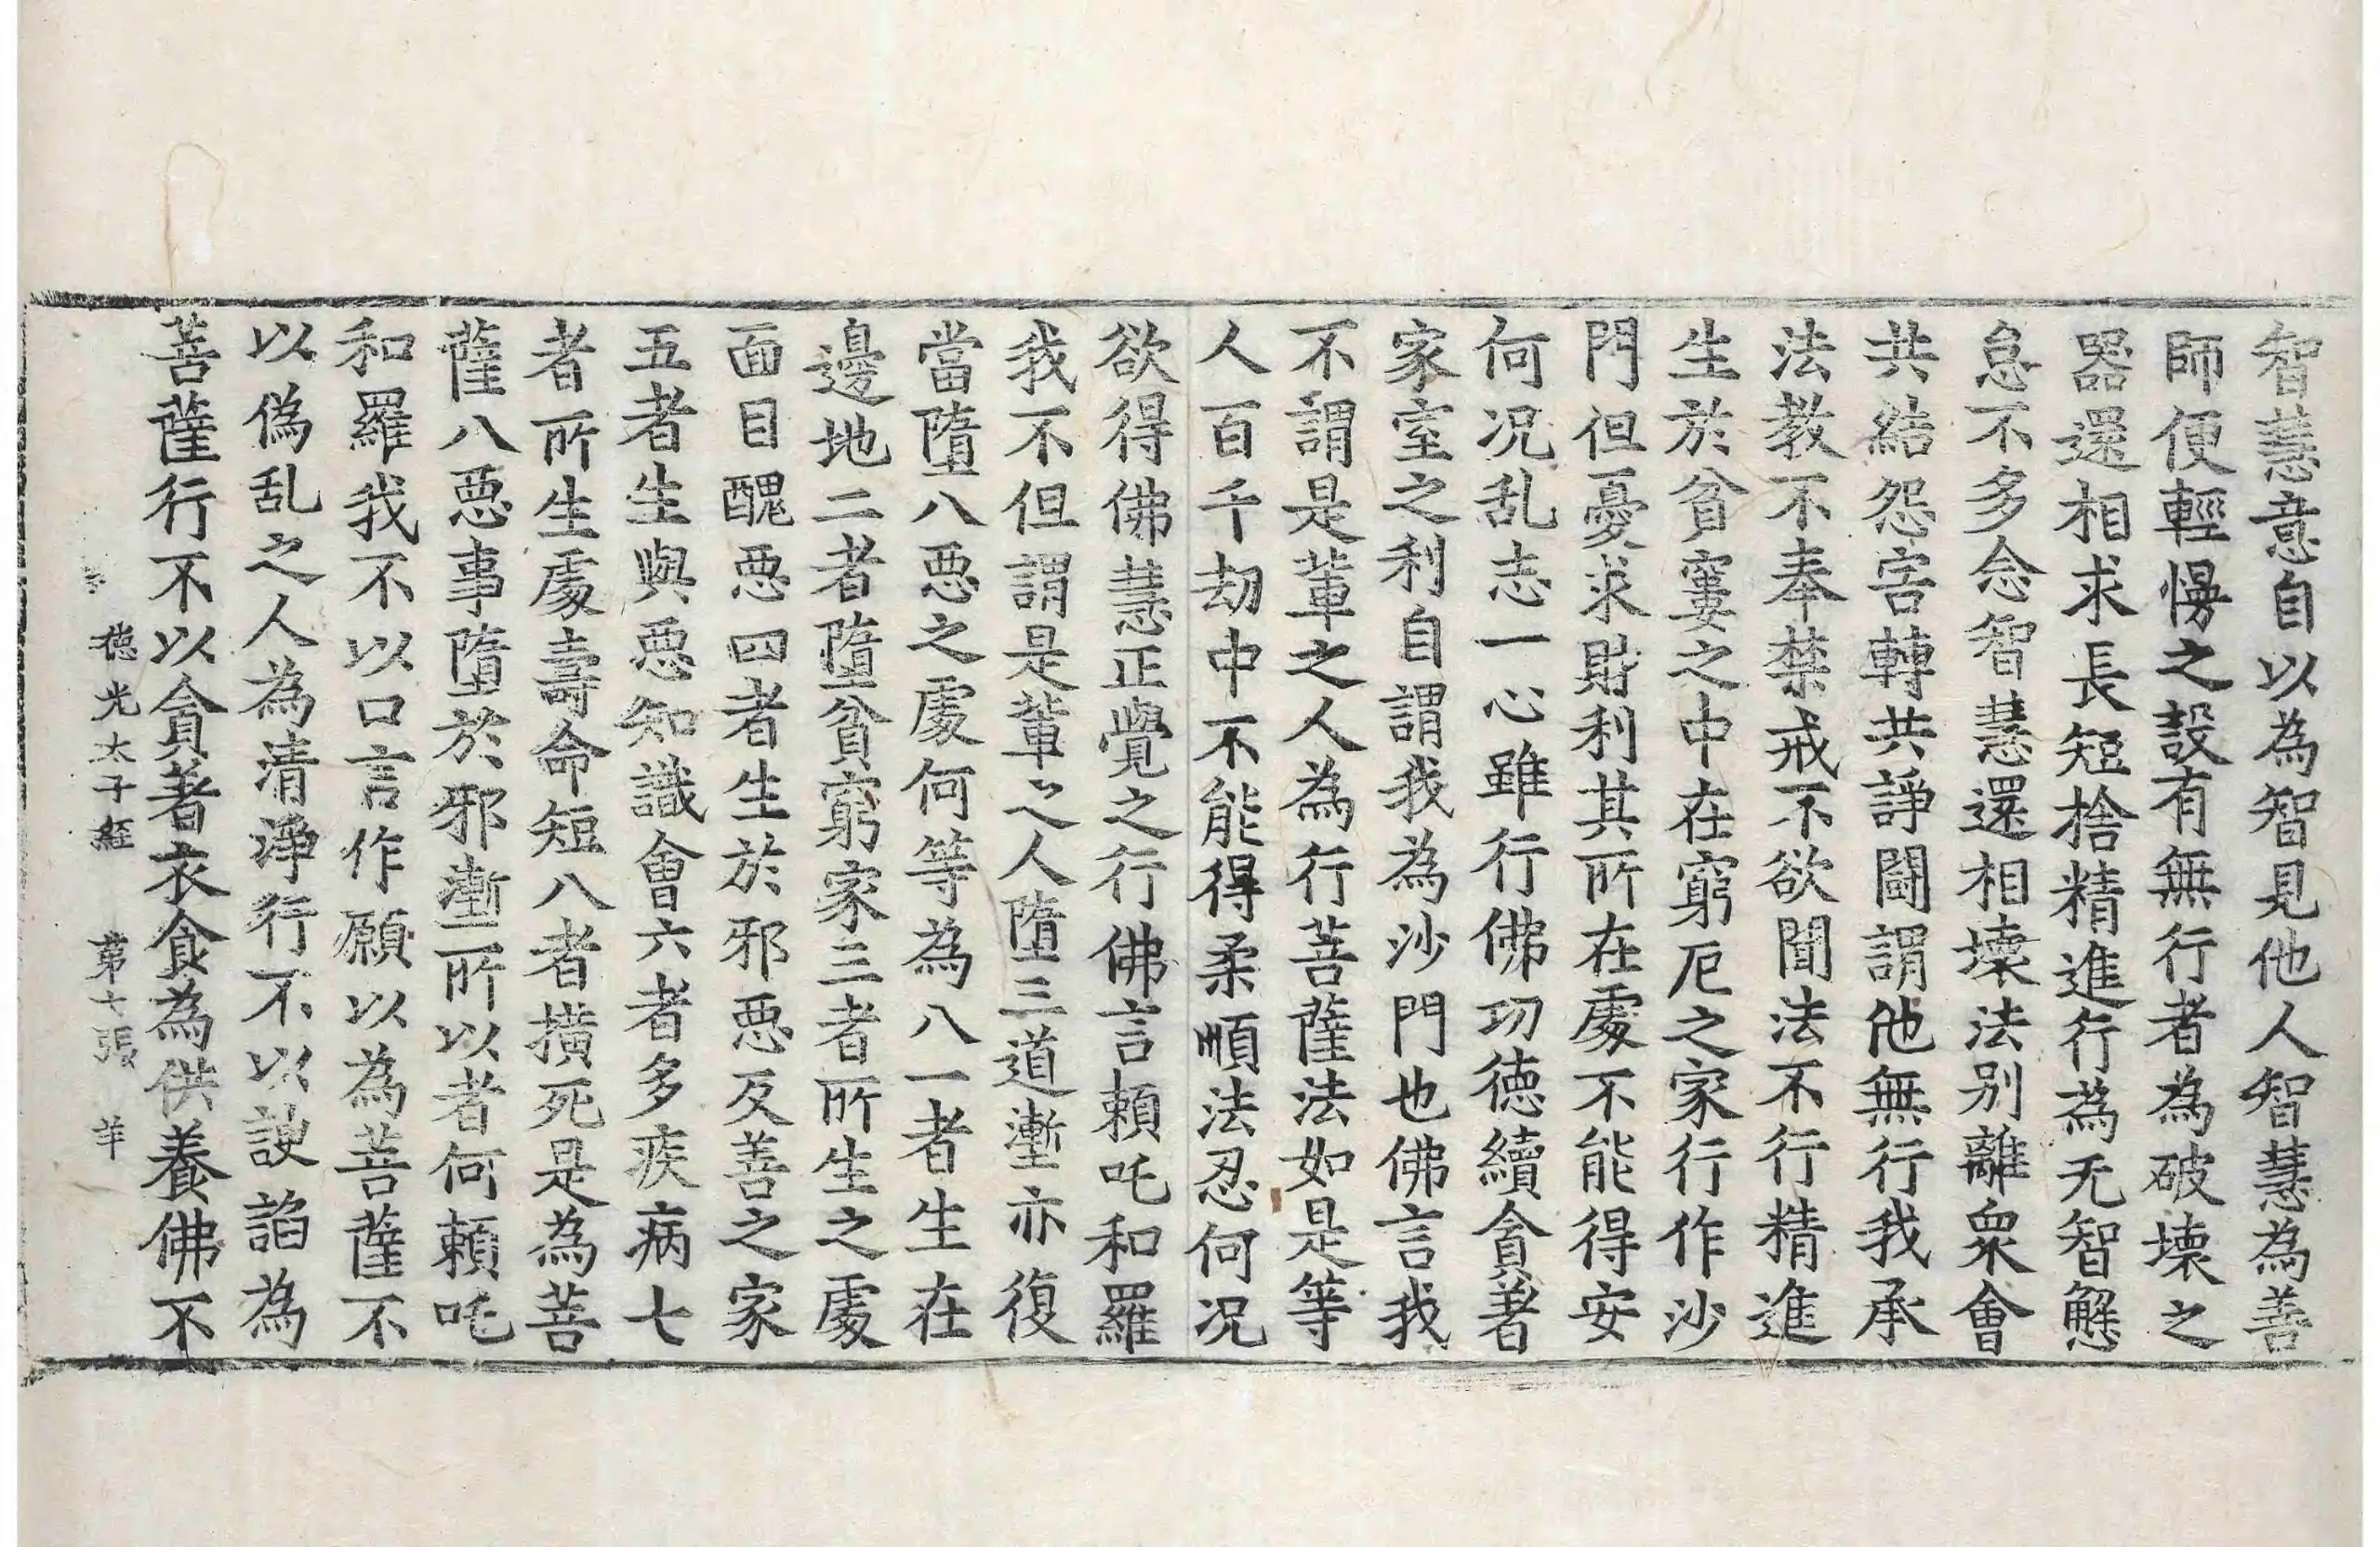 智慧意自以為智見他人智慧為善
師便輕慢之設有無行者為破壊之
器還相求長短捨精進行為无智解
怠不多念智慧還相壊法别離衆會
共結怨害轉共諍鬪謂他無行我承
法教不奉禁戒不欲聞法不行精進
生於貧窶之中在窮厄之家行作沙
門但憂求財利其所在處不能得安
何况乱志一心雖行佛功德續貪著
家室之利自謂我為沙門也佛言我
不謂是輩之人為行菩薩法如是等
人百千劫中不能得柔順法忍何况
欲得佛慧正覺之行佛言頼吒和羅
我不但謂是輩之人墮三道塹亦復
當墮八惡之處何等為八一者生在
邊地二者墮貧窮家三者所生之處
面目醜惡四者生於邪惡反善之家
五者生與惡知識會六者多疾病七
者所生處壽命短八者横死是為菩
薩八惡事墮於邪塹所以者何頼吒
和羅我不以口言作願以為菩薩不
以偽乱之人為清淨行不以諛諂為
菩薩行不以貪著衣食為供養佛不
德光太子經 第七張 羊